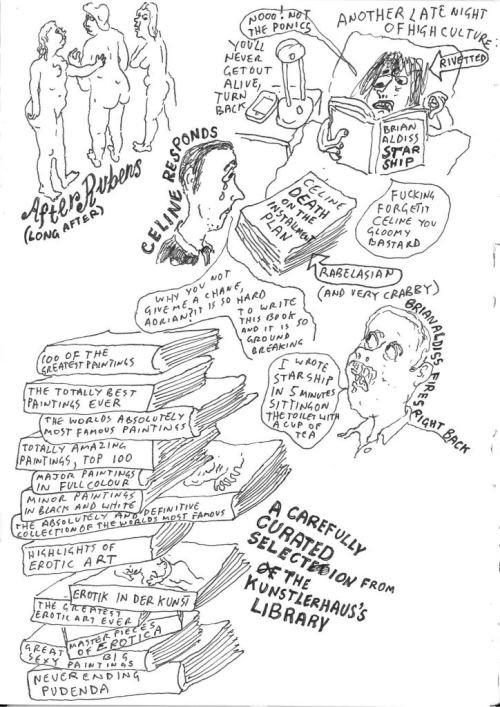 NOOO! NOT
THE PONICS
ANOTHER LATE NIGHT
OF HIGH CULTURE
RIVETTED
YOU'LL
NEVER
GET OUT
ALIVE,
TURN
BACK
BRIAN
ALDISS
STAR
SHIP
After Rubens
(LONG AFTER)
CELINE RESPONDS
CELINE
DEATH
ON THE
INSTALMENT
PLAN
FUCKING
FORGET IT
CELINE YOU
GLOOMY
BASTARD
RABELASIAN
(AND VERY CRABBY)
WHY YOU NOT
GIVE ME A CHANE,
ADRIAN? IT IS SO HARD
TO WRITE
THIS BOOK
AND IT IS SO
GROUND
BREAKING
BRIAN ALDISS FIRES
RIGHT BACK
I WROTE
STARSHIP
IN 5 MINUTES
SITTING ON
THE TOILET WITH
A CUP OF
TEA
100 OF THE
GREATEST PAINTINGS
THE TOTALLY BEST
PAINTINGS EVER
THE WORLDS ABSOLUTELY
MOST FAMOUS PAINTINGS
TOTALLY AMAZING
PAINTINGS, TOP 100
MAJOR PAINTINGS
IN FULL COLOUR
MINOR PAINTINGS
IN BLACK AND WHITE
THE ABSOLUTELY AND DEFINITIVE
COLLECTION OF THE WORLDS MOST FAMOUS
HIGHLIGHTS OF
EROTIC ART
EROTIK IN DER KUNST
THE GREATEST
EROTIC ART EVER
MASTERPIECES
OF EROTICA
GREAT BIG
SEXY PAINTINGS
NEVER ENDING
PUDENDA
A CAREFULLY
CURATED
SELECTEION FROM
OF THE
KUNSTLERHAUS'S
LIBRARY